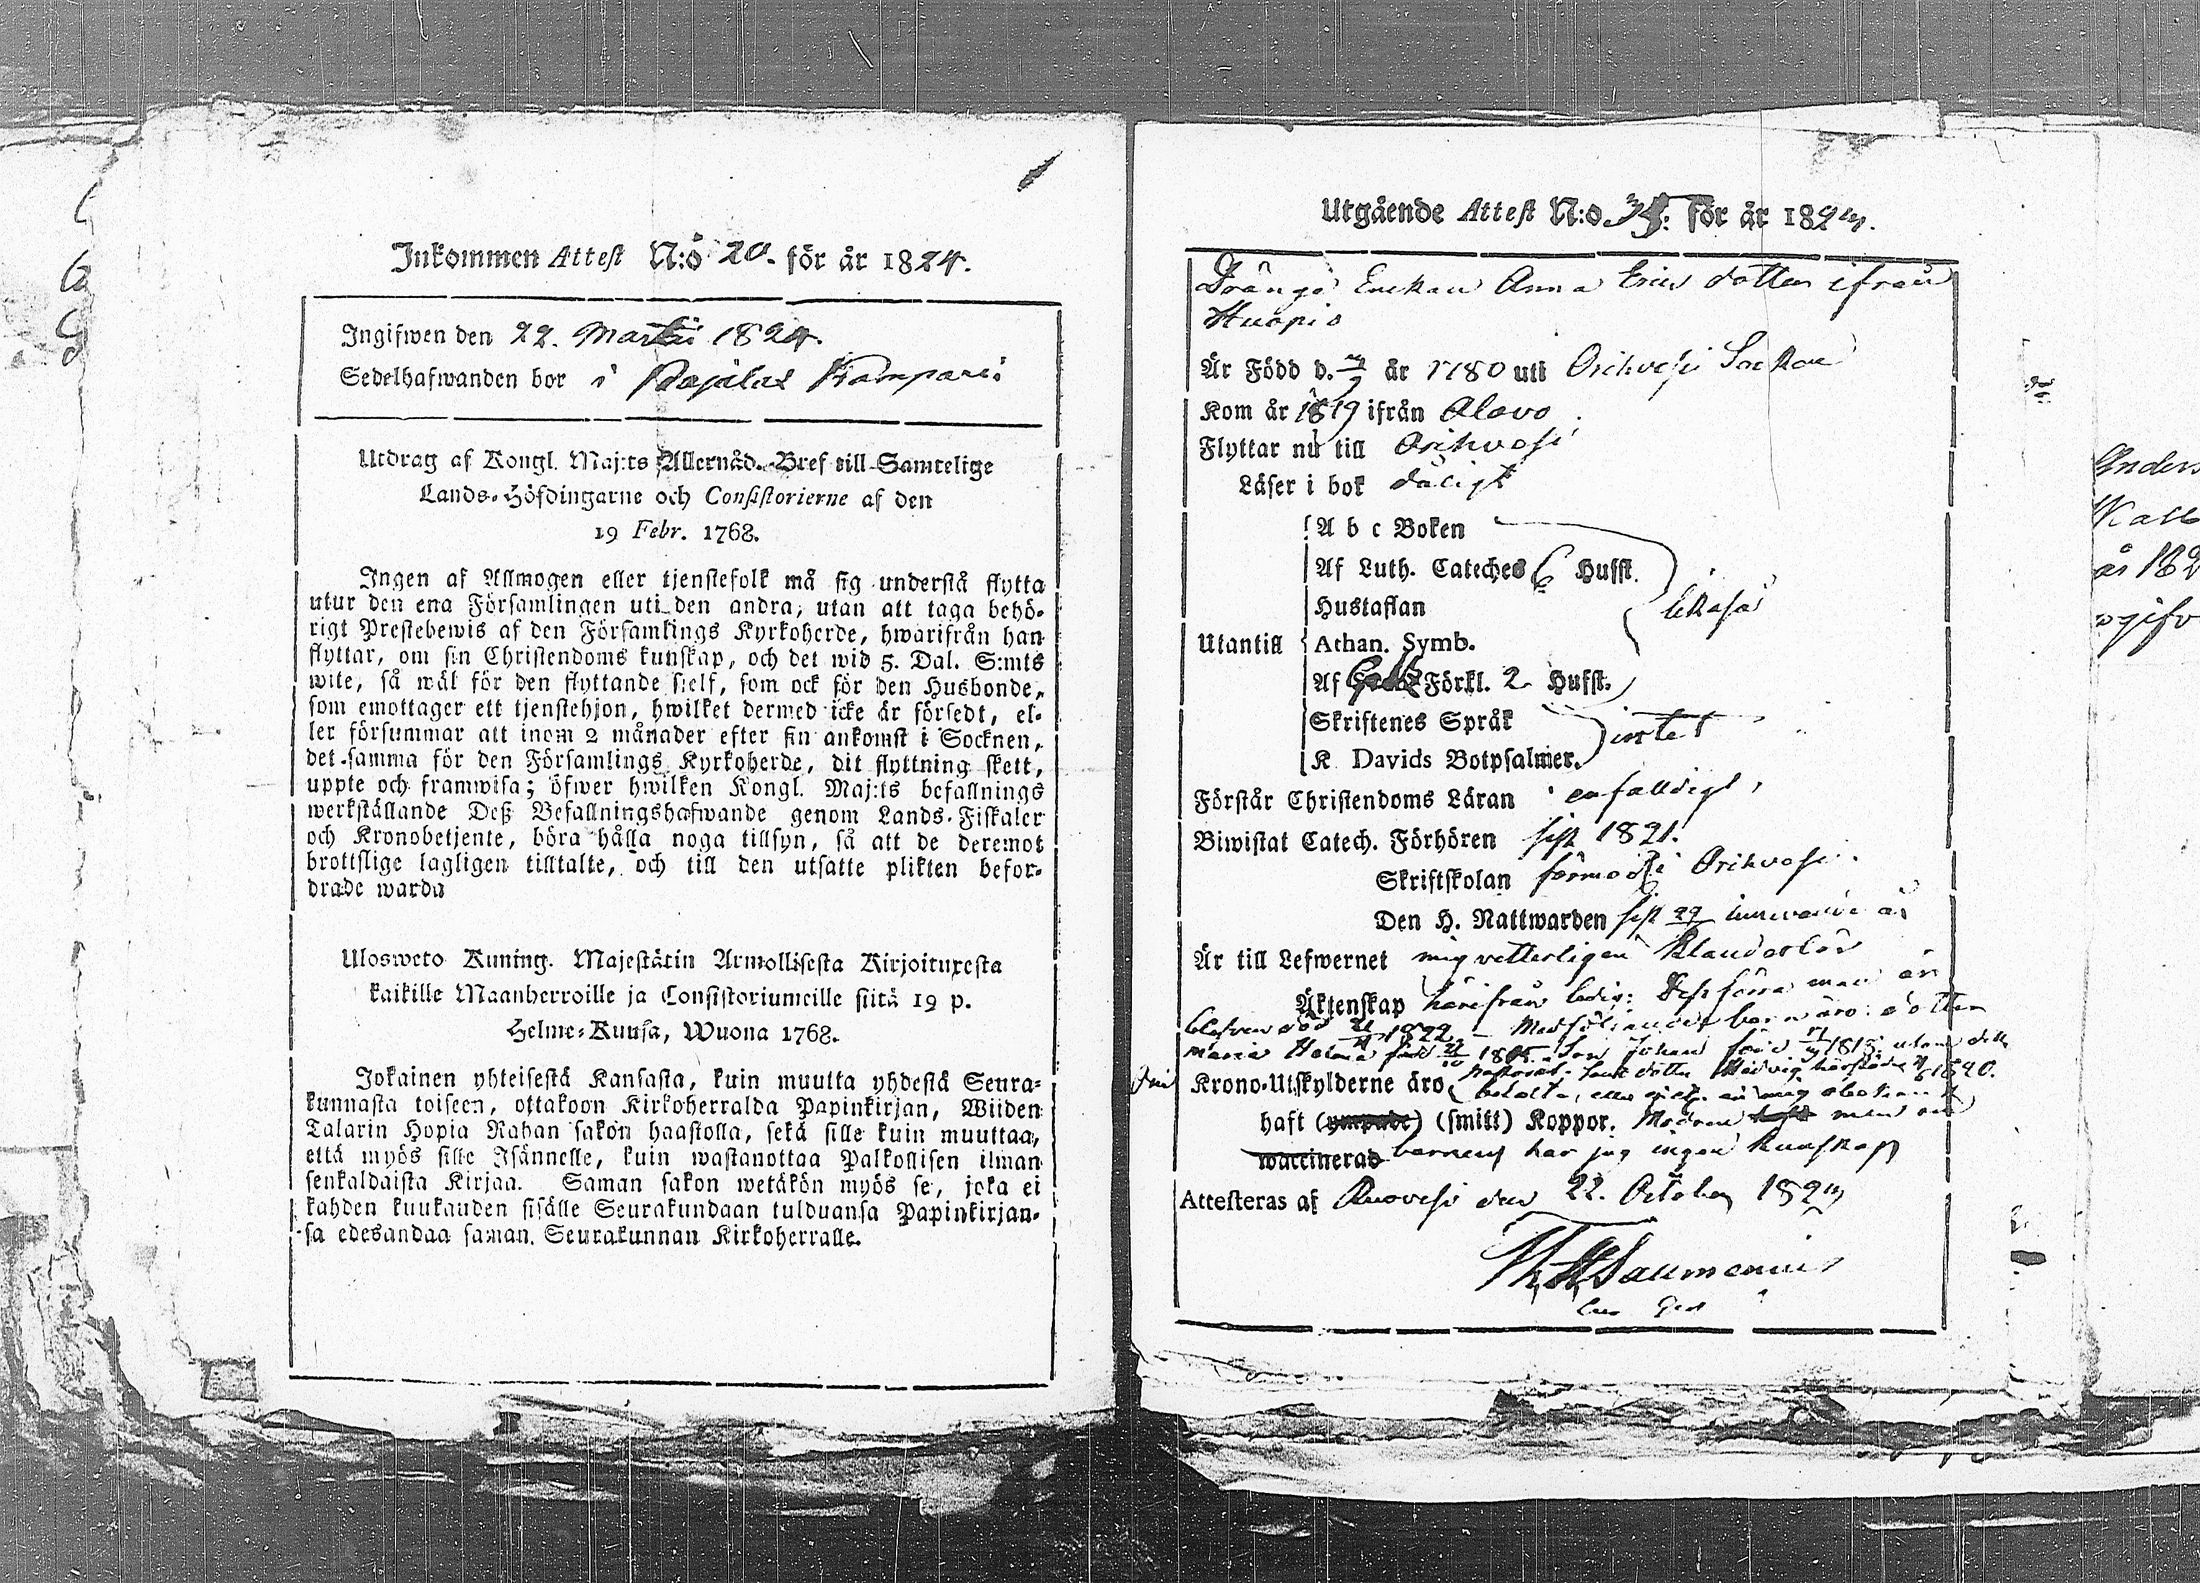 Inkommen Attest N:o 20. för år 1824.
Ingifwen den 22. Martii 1824.
Sedelhafwanden bor i Pajulax Kamparis
Utdrag af Kongl. Maj:ts Allernåd. Bref till Samtelige
Lands-Höfdingarne och Consistorierne af den
19 Febr. 1768.
Ingen af Allmogen eller tjenstefolk må sig understå flytta
utur den ena Församlingen uti den andra, utan att taga behö-
rigt Prestebewis af den Församlings Kyrkoherde, hwarifrån han
flyttar, om sin Christendoms kunskap, och det wid 5. Dal. S:mts
wite, så wäl för den flyttande sielf, som ock för den Husbonde,
som emottager ett tjenstehjon, hwilket dermed icke är försedt, el-
ler försummar att inom 2 månader efter sin ankomst i Socknen,
det samma för den Församlings Kyrkoherde, dit flyttning skett,
uppte och framwisa; öfwer hwilken Kongl. Maj:ts befallnings
werkställande Deß Befallningshafwande genom Lands-Fiskaler
och Kronobetjente, böra hålla noga tillsyn, så att de deremot
brottslige lagligen tilltalte, och till den utsatte plikten befor-
drade warda
Ulosweto Kuning. Majestätin Armollisesta Kirjoituxesta
kaikille Maanherroille ja Consistoriumeille siitä 19 p.
Helme-Kuusa, Wuona 1768.
Jokainen yhteisestä Kansasta, kuin muutta yhdestä Seura-
kunnasta toiseen, ottakoon Kirkoherralda Papinkirjan, Wiiden
Talarin Hopia Rahan sakon haastolla, sekä sille kuin muuttaa,
että myös sille Isännelle, kuin wastanottaa Palkollisen ilman
senkaldaista Kirjaa. Saman sakon wetäkön myös se, joka ei
kahden kuukauden sisälle Seurakundaan tulduansa Papinkirjan-
sa edesandaa saman Seurakunnan Kirkoherralle.
Utgående Attest N:o 34. för år 1823.
Drängs Enckan Anna Ericsdotter ifrån
Kuopio
Är Född d. år 1780 uti Orihvesi Socken
Kom år 1819 ifrån Alavo.
Flyttar nu till Orihvesi
Läser i bok dåligt
A b c Boken
Af Luth. Cateches 6 Husst.
Hustaflan
likaså
Utantill Athan. Symb.
Af Förkl. 2 Husst.
Skriftenes Språk
intet
K. Davids Botpsalmer.
Förstår Christendoms Läran enfalldigt,
Biwistat Catech. Förhören sist 1821.
Skriftskolan i Orihvesi.
Den H. Nattwarden sist innevarande år
Är till Lefwernet mig vetterligen klanderlös
Äktenskap härifrån ledig: Dess förra man
död 1822 Medföljande barn äro: dotter
Maria Helena född Son Johan född 1815
dotter Hedvig 1820.
Krono-Utskylderne äro betalte, eller
haft (smitt) Koppor. Modren men om
waccinerad barnens har jag ingen kunskap
Attesteras af Ruovesi den 22. October 1823